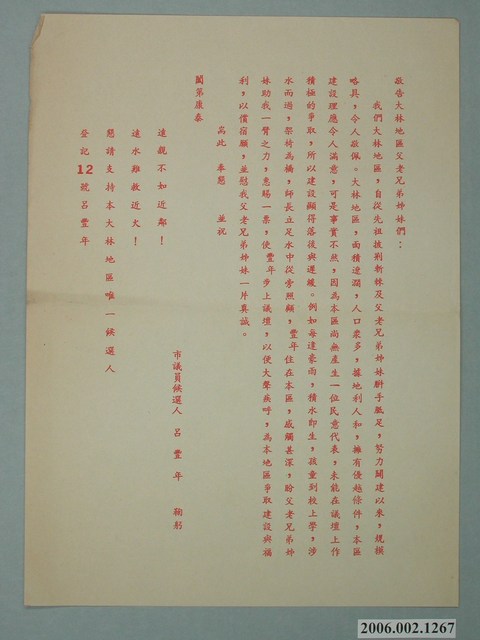 敬告大林地區父老兄弟姊妹們：
我們大林地區，自從先祖披荆斬棘及父老兄弟姊妹胼手胝足，努力闢建以來，規模
略具，令人敬佩。大林地區，面積遼濶，人口衆多，據地利人和，擁有優越條件，本區
建設理應令人滿意，可是事實不然，因為本區尚無產生一位民意代表，未能在議壇上作
積極的爭取，所以建設顯得落後與遲緩。例如每逢豪雨，積水卽生，孩童到校上學，涉
水而過，架椅為橋，師長立足水中從旁照顧，豐年住在本區，感觸甚深，盼父老兄弟姊
妹助我一臂之力，惠賜一票，使豐年步上議壇，以便大聲疾呼，為本地區爭取建設與福
利，以償宿願，並慰我父老兄弟姊妹一片真誠。
耑此 奉懇 並祝
闔第康泰
市議員候選人 呂豐年 鞠躬
遠親不如近鄰！
遠水難救近火！
懇請支持本大林地區唯一候選人
登記12號呂豐年
2006.002.1267